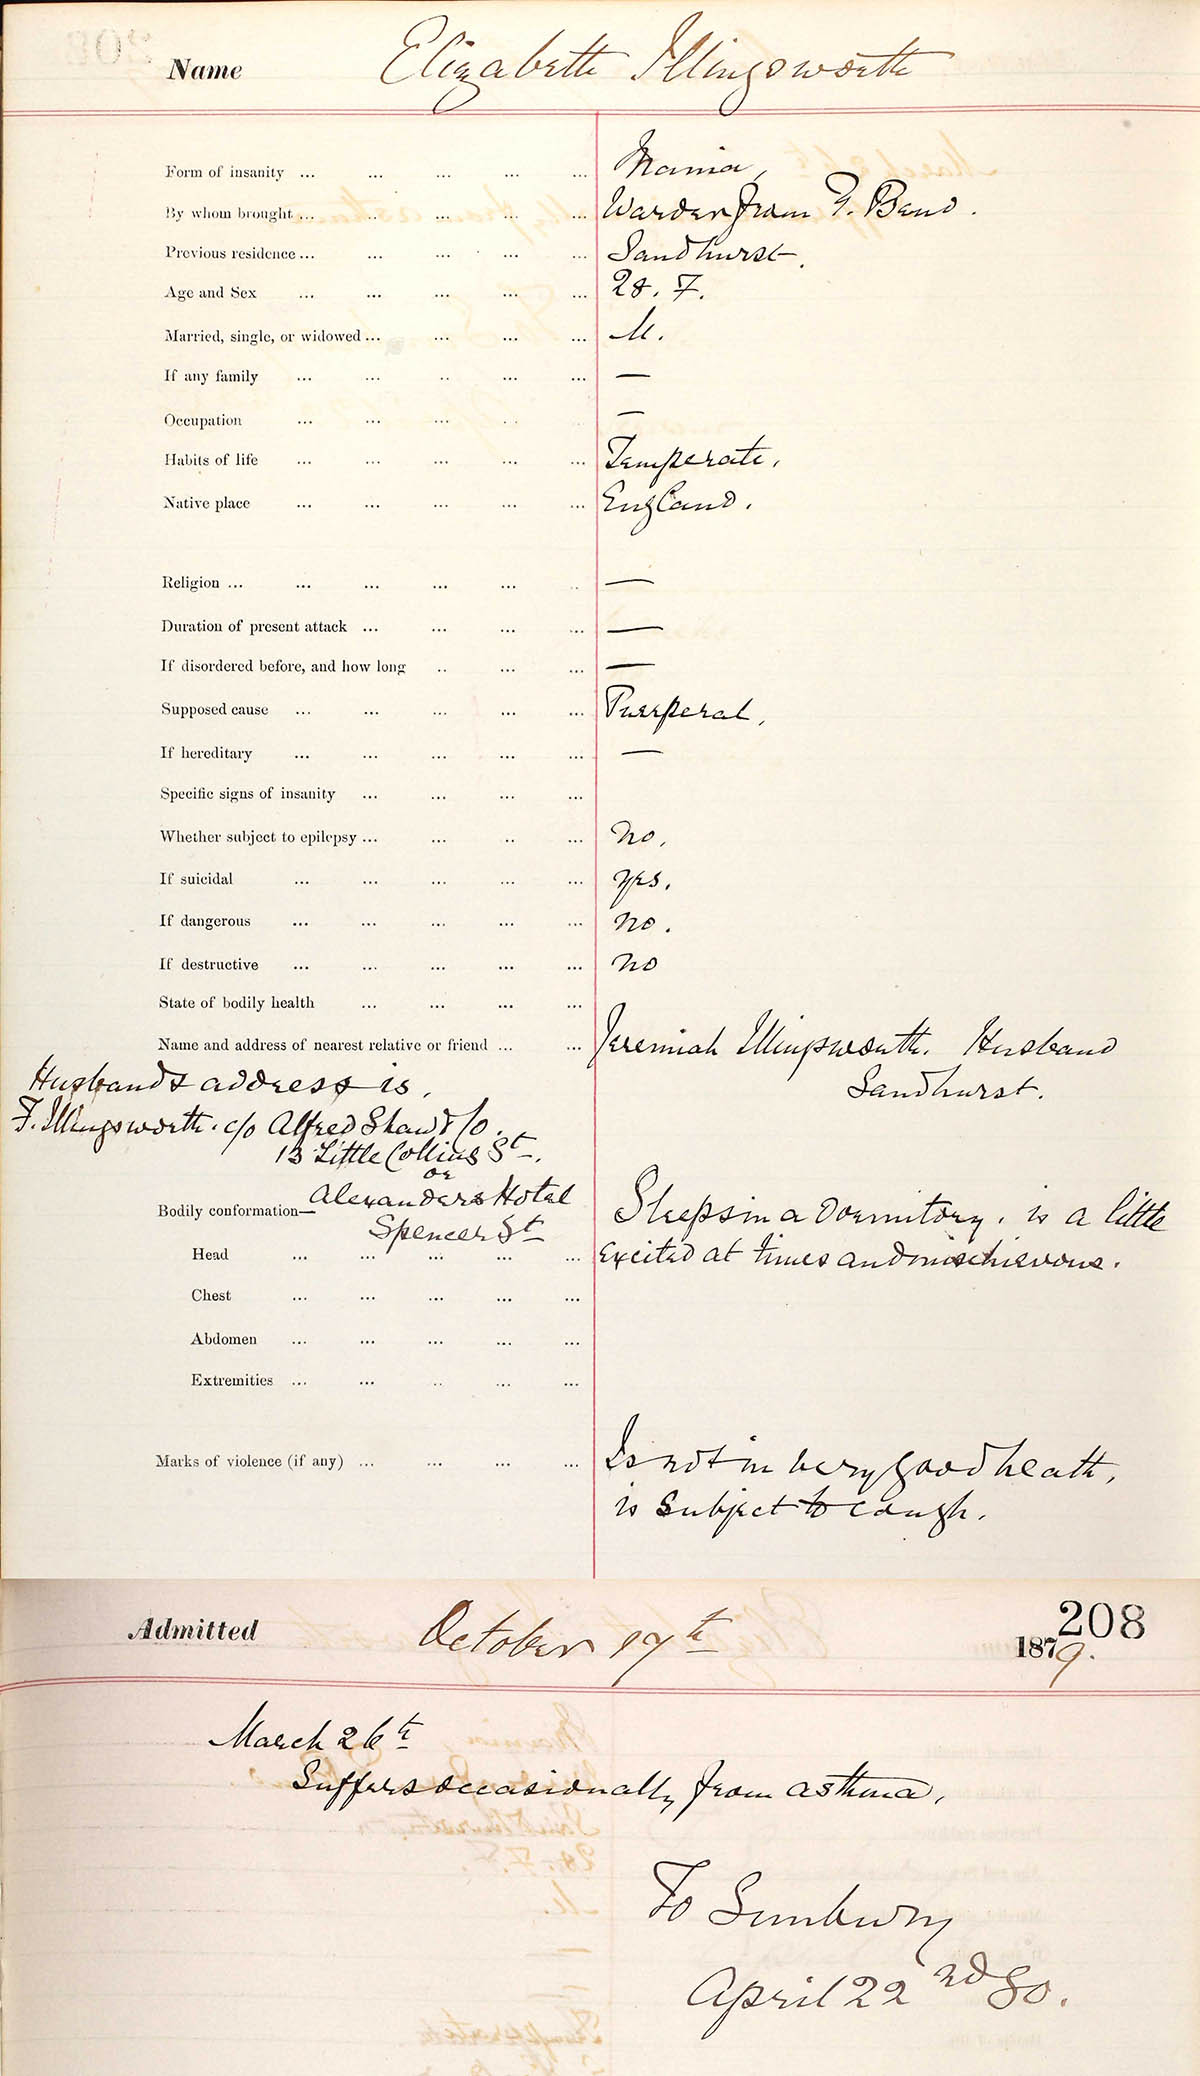 Name Elizabeth Illingsworth
Form of insanity ... ... ... ... ... Mania,
By whom brought ... ... ... ... ... Warder from Y. Bend.
Previous residence ... ... ... ... ... Sandhurst.
Age and Sex ... ... ... ... ... 28. F.
Married, single, or widowed ... ... ... ... M.
If any family ... ... .. ... ... —
Occupation ... ... ... . . —
Habits of life ... ... ... ... ... Temperate.
Native place ... ... ... ... ... England.
Religion ... ... ... ... ... .. —
Duration of present attack ... ... ... ... —
If disordered before, and how long .. ... ... —
Supposed cause ... ... ... ... ... Puerperal,
If hereditary ... ... ... ... ... —
Specific signs of insanity ... ... ... ...
Whether subject to epilepsy ... ... .. ... no.
If suicidal ... ... ... ... ... yes.
If dangerous ... ... ... ... ... no.
If destructive ... ... ... ... ... no
State of bodily health ... ... ... ...
Name and address of nearest relative or friend ... ... Jeremiah Illingsworth. Husband
Sandhurst.
Husbands address is,
F. Illingsworth. c/o Alfred Shaw & Co.
13 Little Collins St.
or
Bodily conformation— Alexanders Hotel
Spencer St
Sleeps in a Dormitory. is a little
Head ... ... ... ... ... excited at times and mischievous.
Chest ... ... ... ... ...
Abdomen ... ... ... ... ...
Extremities ... ... .. ... ...
Marks of violence (if any) ... ... ... ... Is not in very good heath,
is subject to cough.
208
Admitted October 19th 1879.
March 26th
Suffers occasionally from asthma,
To Sunbury
April 22nd 80.